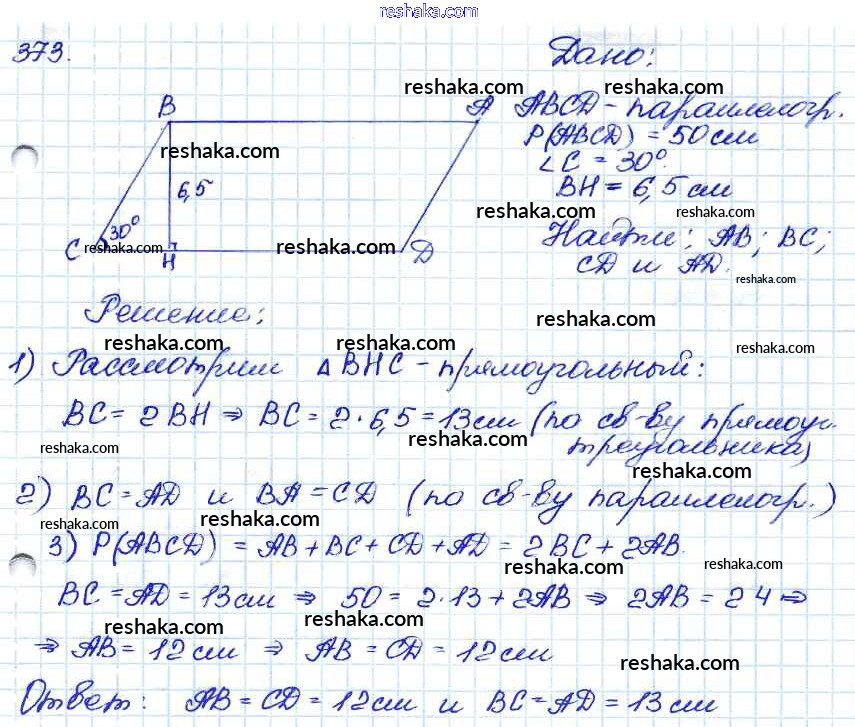 reshaka.com
373.
Дано:
reshaka.com
reshaka.com
B
A
ABCD - параллелогр.
P(ABCD) = 50 см
reshaka.com
∠C = 30°.
6,5
BH = 6,5 см
reshaka.com
reshaka.com
30°
C
reshaka.com
H
reshaka.com
D
Найти: AB; BC;
CD и AD.
reshaka.com
Решение:
reshaka.com
reshaka.com
reshaka.com
reshaka.com
1) Рассмотрим ΔBHC - прямоугольный:
BC = 2BH ⇒ BC = 2·6,5 = 13 см (по св-ву прямоуг.
reshaka.com
reshaka.com
треугольника)
reshaka.com
2) BC = AD и BA = CD (по св-ву параллелогр.)
reshaka.com
reshaka.com
3) P(ABCD) = AB + BC + CD + AD = 2BC + 2AB.
reshaka.com
reshaka.com
BC = AD = 13 см ⇒ 50 = 2·13 + 2AB ⇒ 2AB = 24 ⇒
reshaka.com
reshaka.com
⇒ AB = 12 см ⇒ AB = CD = 12 см
reshaka.com
Ответ: AB = CD = 12 см и BC = AD = 13 см